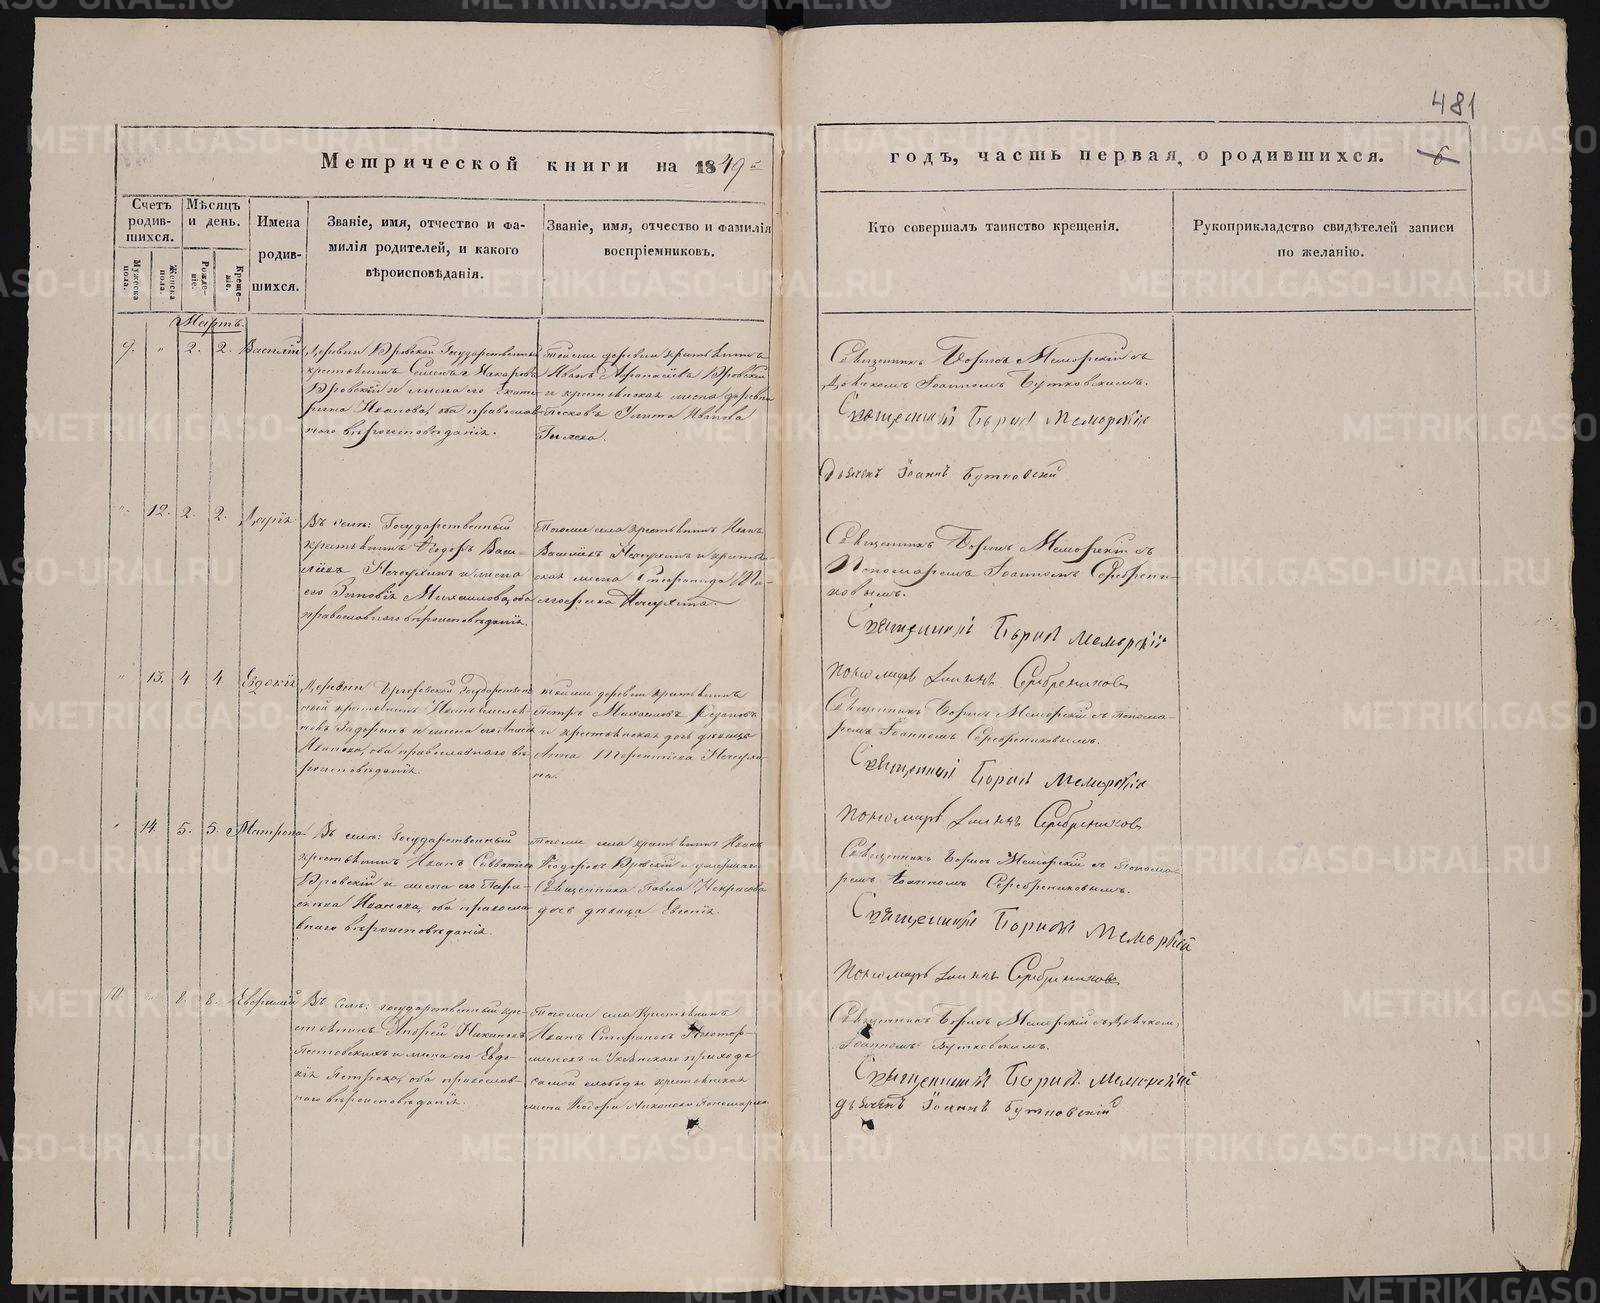 481
Метрической книги на 1849й
годъ, часть первая, о родившихся. 6
Счетъ родив-
шихся.
Мѣсяцъ
и день.
Имена
родив-
шихся.
Званіе, имя, отчество и фа-
милія родителей, и какого
вѣроисповѣданія.
Званіе, имя, отчество и фамилія
воспріемниковъ.
Кто совершалъ таинство крещенія.
Рукоприкладство свидѣтелей записи
по желанію.
Мужеска
пола.
Женска
пола.
Рожде-
ніе.
Креще-
ніе.
Мартъ.
9. " 2. 2. Василій
Деревни Юровской Государственный
крестьянинъ Макаровъ
Юровскій и жена его Екате-
рина Иванова, оба православ-
наго вѣроисповѣданія.
Тойже деревни крестьянинъ
Иванъ Юровскій
и крестьянская жена деревни
Песковъ Улита Иванова
Священникъ Борисъ Меморскій съ
Дьячкомъ Іоанномъ Бутковскимъ.
Священникъ Борисъ Меморскій
Дьячекъ Іоаннъ Бутковскій
" 12. 2. 2. Марія
Въ селѣ: Государственный
крестьянинъ Ѳеодоръ Васи-
льевъ Нечухинъ и жена
его Зиновія Михаилова, оба
православнаго вѣроисповѣданія.
Тогоже села крестьянинъ Иванъ
Васильевъ Нечухинъ и крестьян-
ская жена Ти-
моѳеева Нечухина.
Священникъ Борисъ Меморскій съ
Пономаремъ Іоанномъ Серебрени-
ковымъ.
Священникъ Борисъ Меморскій
Пономарь Іоаннъ Серебрениковъ
" 13. 4 4 Евдокія
Деревни Государствен-
ной крестьянинъ Иванъ Емелья-
новъ Задоринъ и жена его
Иванова, оба православнаго вѣ-
роисповѣданія.
Тойже деревни крестьянинъ
Петръ Михаиловъ
и крестьянская дочь дѣвица
Анна Терентіева Нечухи-
на.
Священникъ Борисъ Меморскій съ понома-
ремъ Іоанномъ Серебрениковымъ.
Священникъ Борисъ Меморскій
Пономарь Іоаннъ Серебрениковъ
" 14. 5. 5. Матрона
Въ селѣ: Государственный
крестьянинъ Иванъ Савватѣевъ
Юровскій и жена его Пара-
скева Иванова, оба правосла-
внаго вѣроисповѣданія.
Тогоже села крестьянинъ Иванъ
Ѳеодоровъ Юровскій и умершаго
Священника Павла Некрасова
дочь дѣвица Евгенія.
Священникъ Борисъ Меморскій съ Понома-
ремъ Іоанномъ Серебрениковымъ.
Священникъ Борисъ Меморскій
Пономарь Іоаннъ Серебрениковъ
10. " 8. 8. Евѳимій
Въ Селѣ: государственный кре-
стьянинъ Андрей
и жена его Евдо-
кія Петрова, оба православ-
наго вѣроисповѣданія.
Тогоже села Крестьянинъ
Иванъ Стефановъ
и прихода
самой слободы крестьянская
жена Ѳеодора
Священникъ Борисъ Меморскій съ Дьячкомъ
Іоанномъ Бутковскимъ.
Священникъ Борисъ Меморскій
дьячекъ Іоаннъ Бутковскій
METRIKI.GASO-URAL.RU